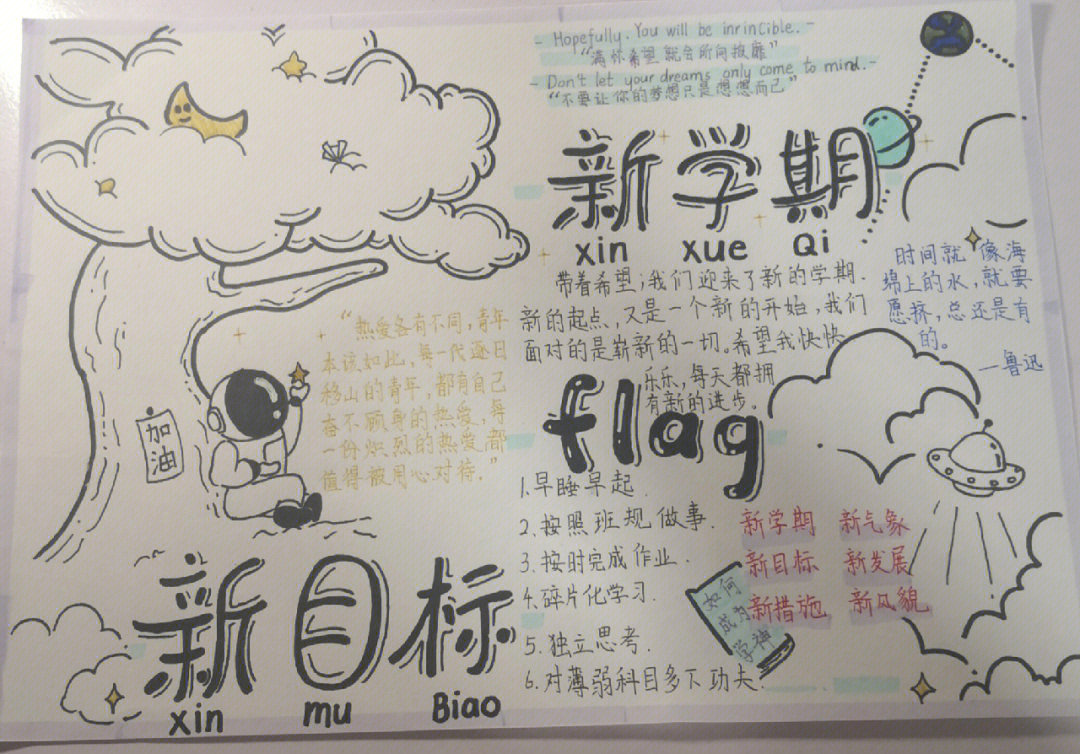 - Hopefully. You will be inrincible. -
“满怀希望就会所向披靡”
- Don't let your dreams only come to mind. -
“不要让你的梦想只是想想而已”
新学期
xin xue Qi
带着希望,我们迎来了新的学期.
新的起点,又是一个新的开始,我们
面对的是崭新的一切.希望我快快
乐乐,每天都拥
有新的进步.
时间就像海
绵上的水,就要
愿挤,总还是有
的。
—鲁迅
“热爱各有不同,青年
本该如此,每一代逐日
移山的青年,都有自己
奋不顾身的热爱,每
一份炽烈的热爱,都
值得被用心对待.”
加油
flag
1.早睡早起.
2.按照班规做事.
3.按时完成作业.
4.碎片化学习.
5.独立思考.
6.对薄弱科目多下功夫.
新学期 新气象
新目标 新发展
新措施 新风貌
如何
成为
学神
新目标
xin mu Biao